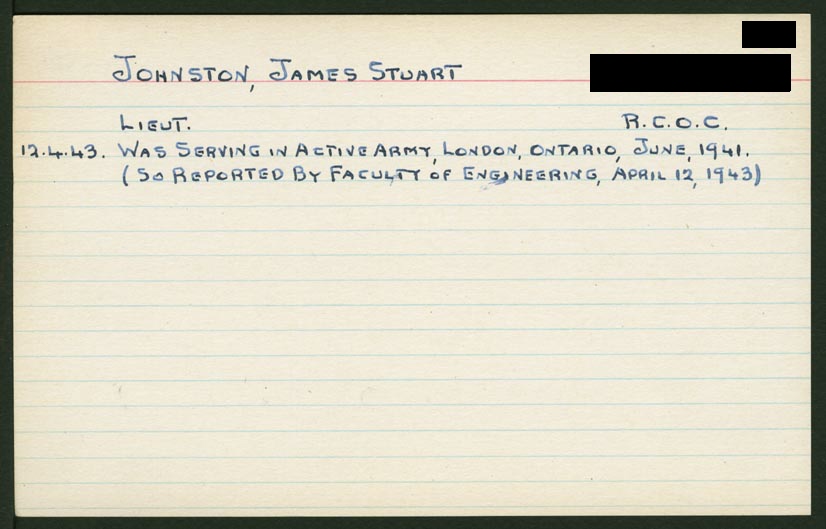 JOHNSTON, JAMES STUART
LIEUT. R.C.O.C.
12.4.43. WAS SERVING IN ACTIVE ARMY, LONDON, ONTARIO, JUNE, 1941.
(SO REPORTED BY FACULTY OF ENGINEERING, APRIL 12, 1943)